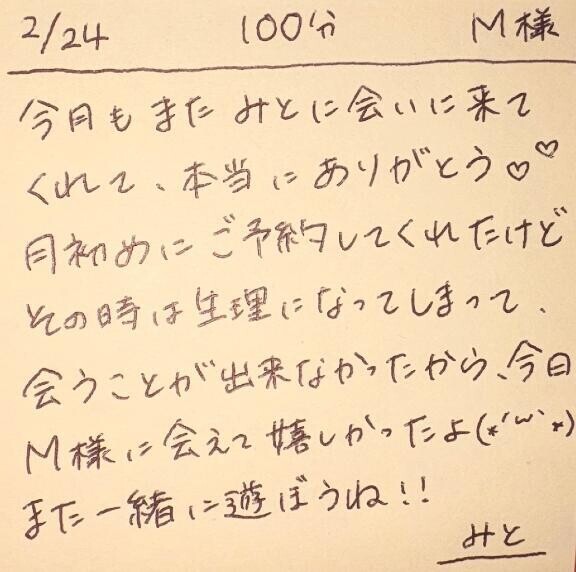 2/24 100分 M様
今月もまたみとに会いに来て
くれて、本当にありがとう♡♡
月初めにご予約してくれたけど
その時は生理になってしまって、
会うことが出来なかったから、今日
M様に会えて嬉しかったよ(*´ω`*)
また一緒に遊ぼうね!!
みと